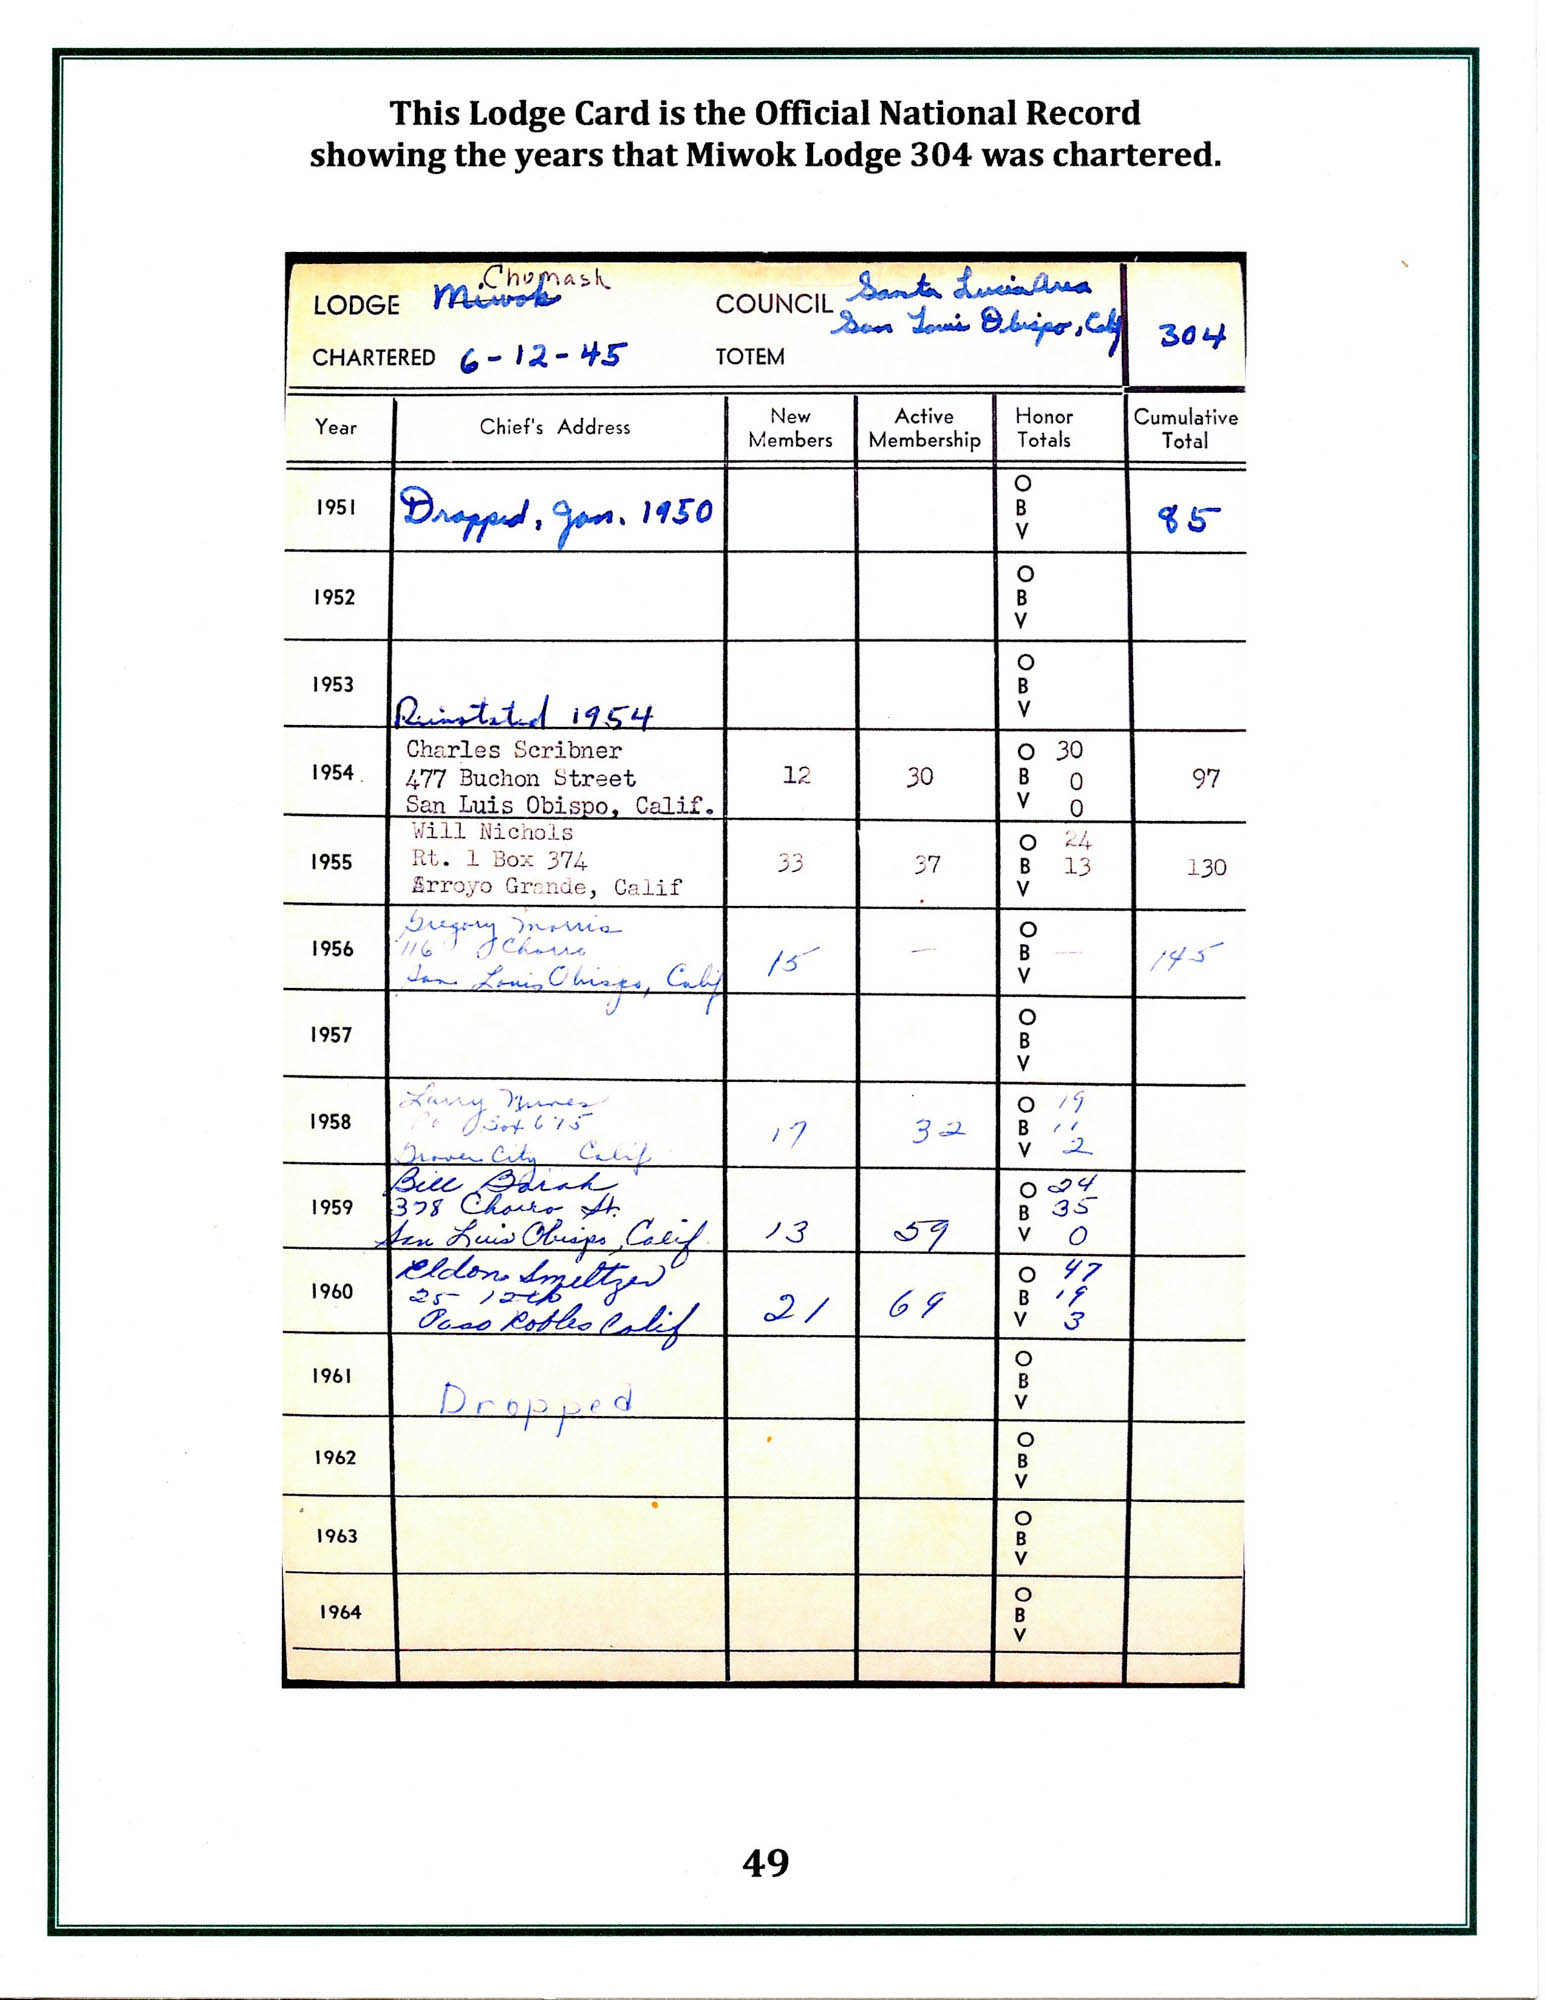 This Lodge Card is the Official National Record
showing the years that Miwok Lodge 304 was chartered.
Chumash
LODGE Miwok COUNCIL Santa Lucia Area
San Louis Obispo, Calif
304
CHARTERED 6-12-45 TOTEM
Year Chief's Address New Members Active Membership Honor Totals Cumulative Total
1951 Dropped, Jan. 1950 O
B
V
85
1952 O
B
V
1953 O
B
V
Reinstated 1954
1954 Charles Scribner
477 Buchon Street
San Luis Obispo, Calif.
12 30 O 30
B 0
V 0
97
1955 Will Nichols
Rt. 1 Box 374
Arroyo Grande, Calif
33 37 O 24
B 13
V
130
1956 Gregory Morris
116 Chorro
San Louis Obispo, Calif
15 — O
B —
V
145
1957 O
B
V
1958 Larry
Box 675
Grover City Calif
17 32 O 19
B 11
V 2
1959 Bill
378 Chorro St.
San Luis Obispo, Calif
13 59 O 24
B 35
V 0
1960 Eldon Smeltzer
25 12th
Paso Robles Calif
21 69 O 47
B 19
V 3
1961 O
B
V
Dropped
1962 O
B
V
1963 O
B
V
1964 O
B
V
49